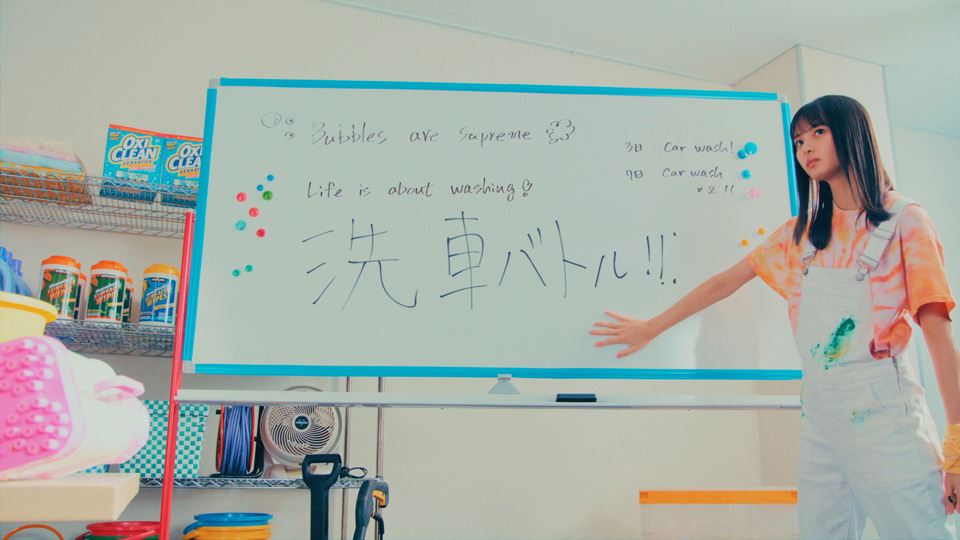 Bubbles are supreme
Life is about washing!
洗車バトル!!
3日 Car wash!
7日 Car wash
×2!!
OXI
CLEAN
VERSATILE
OXI
CLEAN
WIPES